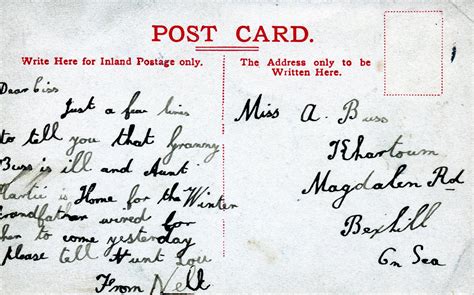 POST CARD.
Write Here for Inland Postage only.
The Address only to be
Written Here.
Dear Ciss
Just a few lines
to tell you that Granny
Buss is ill and Aunt
Hartie is Home for the Winter
Grandfather wired for
her to come yesterday
please tell Aunt Lou
From Nell
Miss A. Buss
Khartoum
Magdalen Rd
Bexhill
On Sea